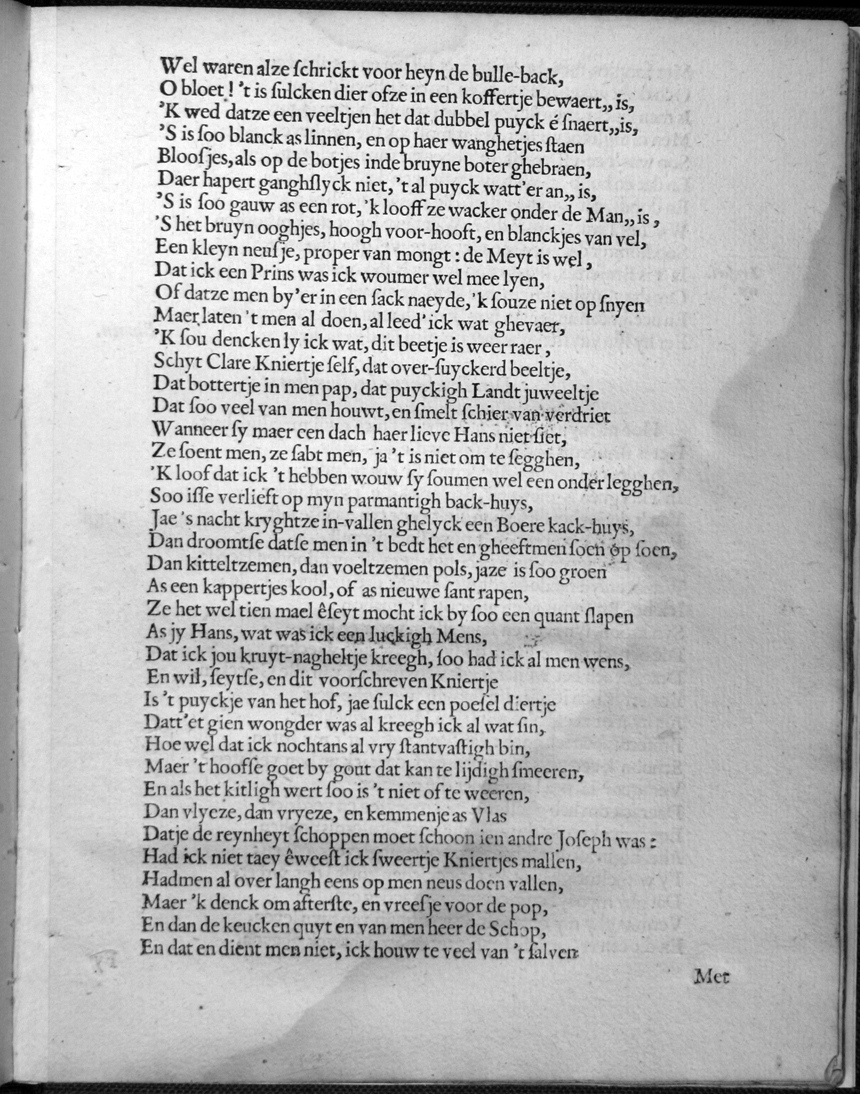 Wel waren alze ſchrickt voor heyn de bulle-back,
O bloet! 't is ſulcken dier ofze in een koffertje bewaert,, is,
'K wed datze een veeltjen het dat dubbel puyck é ſnaert,,is,
'S is ſoo blanck as linnen, en op haer wanghetjes ſtaen
Blooſjes, als op de botjes inde bruyne boter ghebraen,
Daer hapert ganghſlyck niet, 't al puyck watt'er an,, is,
'S is ſoo gauw as een rot, 'k looff ze wacker onder de Man,, is,
'S het bruyn ooghjes, hoogh voor-hooft, en blanckjes van vel,
Een kleyn neuſje, proper van mongt: de Meyt is wel,
Dat ick een Prins was ick woumer wel mee lyen,
Of datze men by'er in een ſack naeyde, 'k ſouze niet op ſnyen
Maer laten 't men al doen, al leed' ick wat ghevaer,
'K ſou dencken ly ick wat, dit beetje is weer raer,
Schyt Clare Kniertje ſelf, dat over-ſuyckerd beeltje,
Dat bottertje in men pap, dat puyckigh Landt juweeltje
Dat ſoo veel van men houwt, en ſmelt ſchier van verdriet
Wanneer ſy maer een dach haer lieve Hans niet ſiet,
Ze ſoent men, ze ſabt men, ja 't is niet om te ſegghen,
'K loof dat ick 't hebben wouw ſy ſoumen wel een onder legghen,
Soo iſſe verlieft op myn parmantigh back-huys,
Jae 's nacht kryghtze in-vallen ghelyck een Boere kack-huys,
Dan droomtſe datſe men in 't bedt het en gheeftmen ſoen op ſoen,
Dan kitteltzemen, dan voeltzemen pols, jaze is ſoo groen
As een kappertjes kool, of as nieuwe ſant rapen,
Ze het wel tien mael êſeyt mocht ick by ſoo een quant ſlapen
As jy Hans, wat was ick een luckigh Mens,
Dat ick jou kruyt-nagheltje kreegh, ſoo had ick al men wens,
En wil, ſeytſe, en dit voorſchreven Kniertje
Is 't puyckje van het hof, jae ſulck een poeſel diertje
Datt'et gien wongder was al kreegh ick al wat ſin,
Hoe wel dat ick nochtans al vry ſtantvaſtigh bin,
Maer 't hooffſe goet by gout dat kan te lijdigh ſmeeren,
En als het kitligh wert ſoo is 't niet of te weeren,
Dan vlyeze, dan vryeze, en kemmenje as Vlas
Datje de reynheyt ſchoppen moet ſchoon ien andre Joſeph was:
Had ick niet taey êweeſt ick ſweertje Kniertjes mallen,
Hadmen al over langh eens op men neus doen vallen,
Maer 'k denck om afterſte, en vreeſje voor de pop,
En dan de keucken quyt en van men heer de Schop,
En dat en dient men niet, ick houw te veel van 't ſalven
Met